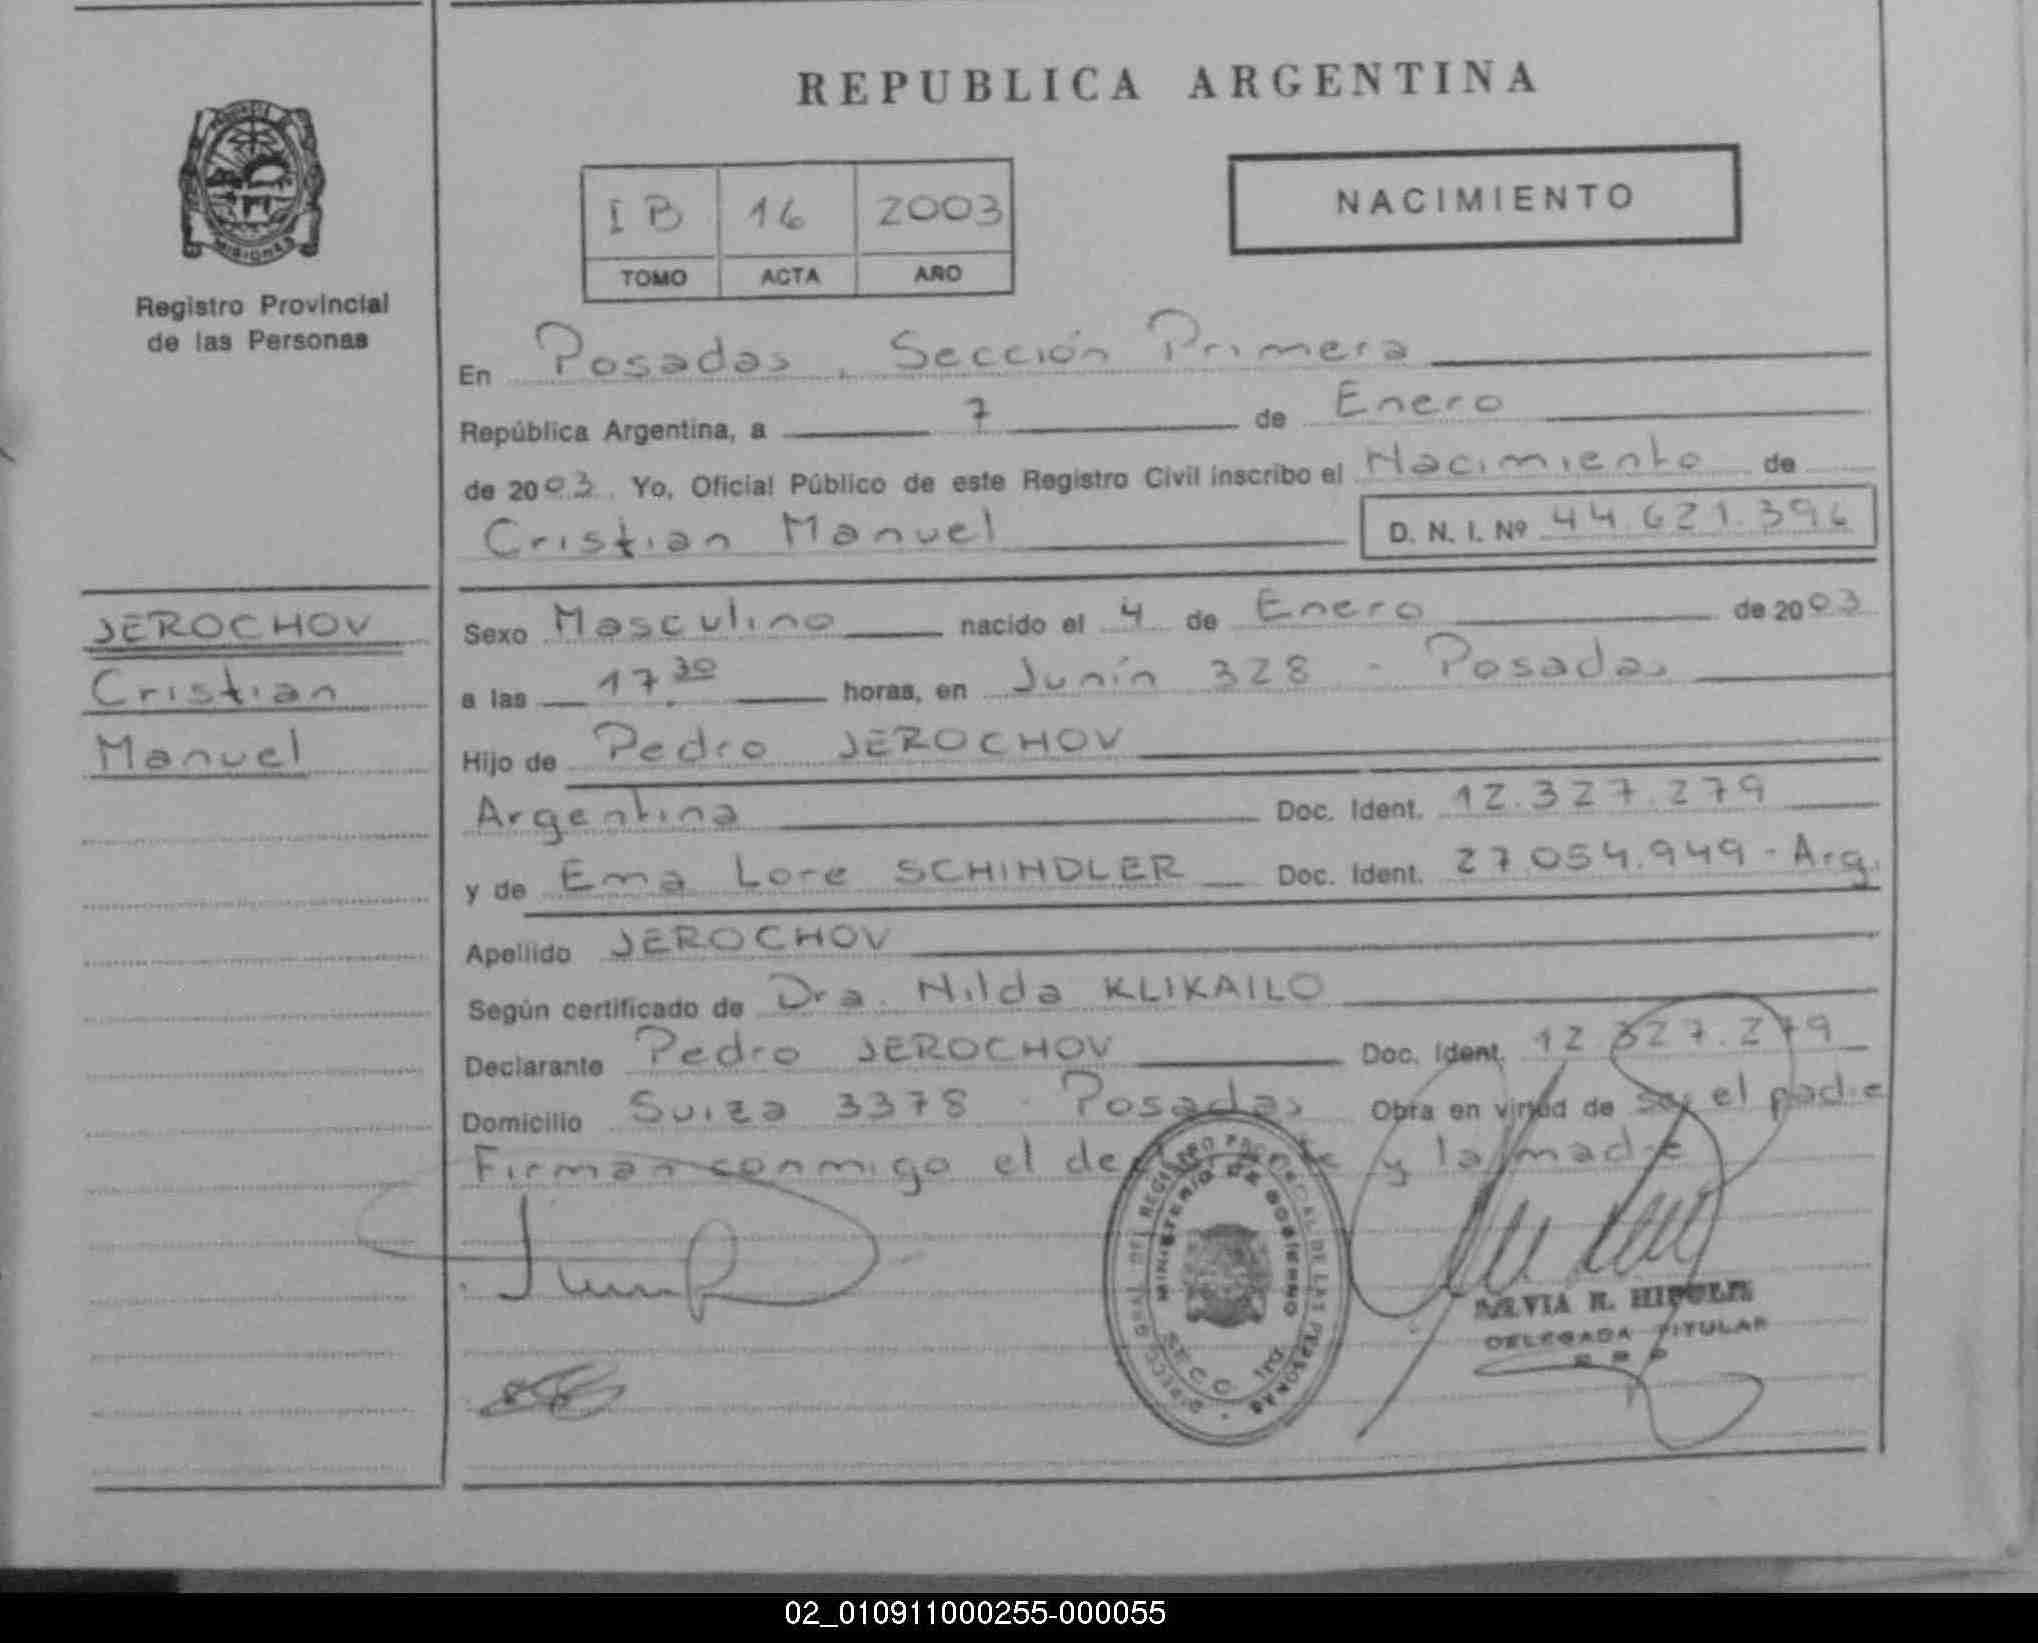 REPUBLICA ARGENTINA
NACIMIENTO
I B 16 2003
TOMO ACTA AÑO
MISIONES
Registro Provincial
de las Personas
En Posadas, Sección Primera
República Argentina, a 7 de Enero
de 2003. Yo, Oficial Público de este Registro Civil inscribo el Nacimiento de
Cristian Manuel D. N. I. Nº 44.621.396
JEROCHOV
Cristian
Manuel
Sexo Masculino nacido el 4 de Enero de 2003
a las 17.30 horas, en Junín 328 - Posadas
Hijo de Pedro JEROCHOV
Argentina Doc. Ident. 12.327.279
y de Ema Lore SCHINDLER Doc. Ident. 27.054.949 - Arg.
Apellido JEROCHOV
Según certificado de Dra. Nilda KLIKAILO
Declarante Pedro JEROCHOV Doc. Ident. 12.327.279
Domicilio Suiza 3378 - Posadas Obra en virtud de ser el padre
Firman conmigo el y la madre
DIRECCION GRAL. DEL REGISTRO PROVINCIAL DE LAS PERSONAS
MINISTERIO DE GOBIERNO
SECC. 1ra
SILVIA R.
DELEGADA TITULAR
02_010911000255-000055